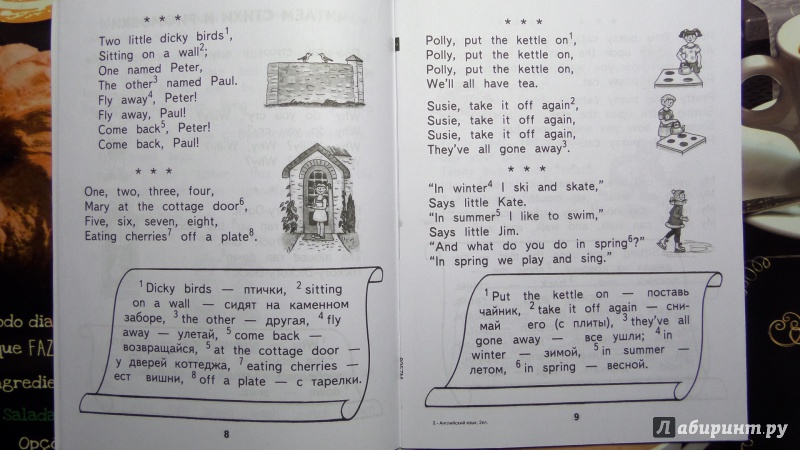 * * *
Two little dicky birds¹,
Sitting on a wall²;
One named Peter,
The other³ named Paul.
Fly away⁴, Peter!
Fly away, Paul!
Come back⁵, Peter!
Come back, Paul!
* * *
One, two, three, four,
Mary at the cottage door⁶,
Five, six, seven, eight,
Eating cherries⁷ off a plate⁸.
¹ Dicky birds — птички, ² sitting
on a wall — сидят на каменном
заборе, ³ the other — другая, ⁴ fly
away — улетай, ⁵ come back —
возвращайся, ⁶ at the cottage door —
у дверей коттеджа, ⁷ eating cherries —
ест вишни, ⁸ off a plate — с тарелки.
8
* * *
Polly, put the kettle on¹,
Polly, put the kettle on,
Polly, put the kettle on,
We'll all have tea.
Susie, take it off again²,
Susie, take it off again,
Susie, take it off again,
They've all gone away³.
* * *
“In winter⁴ I ski and skate,”
Says little Kate.
“In summer⁵ I like to swim,”
Says little Jim.
“And what do you do in spring⁶?”
“In spring we play and sing.”
¹ Put the kettle on — поставь
чайник, ² take it off again — сни-
май его (с плиты), ³ they've all
gone away — все ушли; ⁴ in
winter — зимой, ⁵ in summer —
летом, ⁶ in spring — весной.
2 - Английский язык, 2кл.
9
odo dia
que FAZ
ngredie
Salada
Opço
Лабиринт.ру